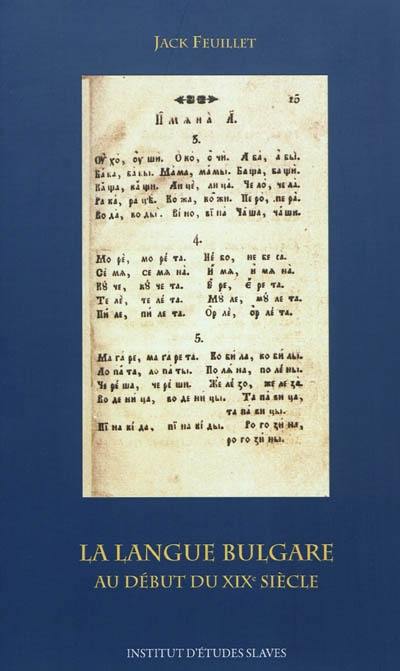 JACK FEUILLET
15
Имѧна̀ А҃.
3.
Оу̀ хо, оу̀ ши. О ко, о чи. А ба, а бы.
Ба ба, ба бы. Ма ма, ма мы. Ба ща, ба щи.
Ка ща, ка щи. Ли це, ли ца. Че ло, че ла.
Ра ка, ра цѣ. Ко жа, ко жи. Пе ро, пе ра.
Во да, во ды. Ви но, ви на Ча ша, ча ши.
4.
Мо ре, мо ре та. Не бо, не бе са.
Се мѧ, се мѧ на. И мѧ, и мѧ на.
Ку че, ку че та. Е ре, Е ре та.
Те ле, те ле та. Му ле, му ле та.
Пи ле, пи ле та. Ор ле, Ор ле та.
5.
Ма га ре, ма га ре та. Ко би ла, ко би лы.
Ло па та, ло па ты. По лѧ на, по ле ны.
Че ре ша, че ре ши. Же ле зо, же ле за.
Во де ни ца, во де ни цы. Та па ви ца,
та па ви цы.
Пї на ки да, пї на ки ды. Ро го зи на,
ро го зи ны.
LA LANGUE BULGARE
AU DÉBUT DU XIXe SIÈCLE
INSTITUT D'ÉTUDES SLAVES